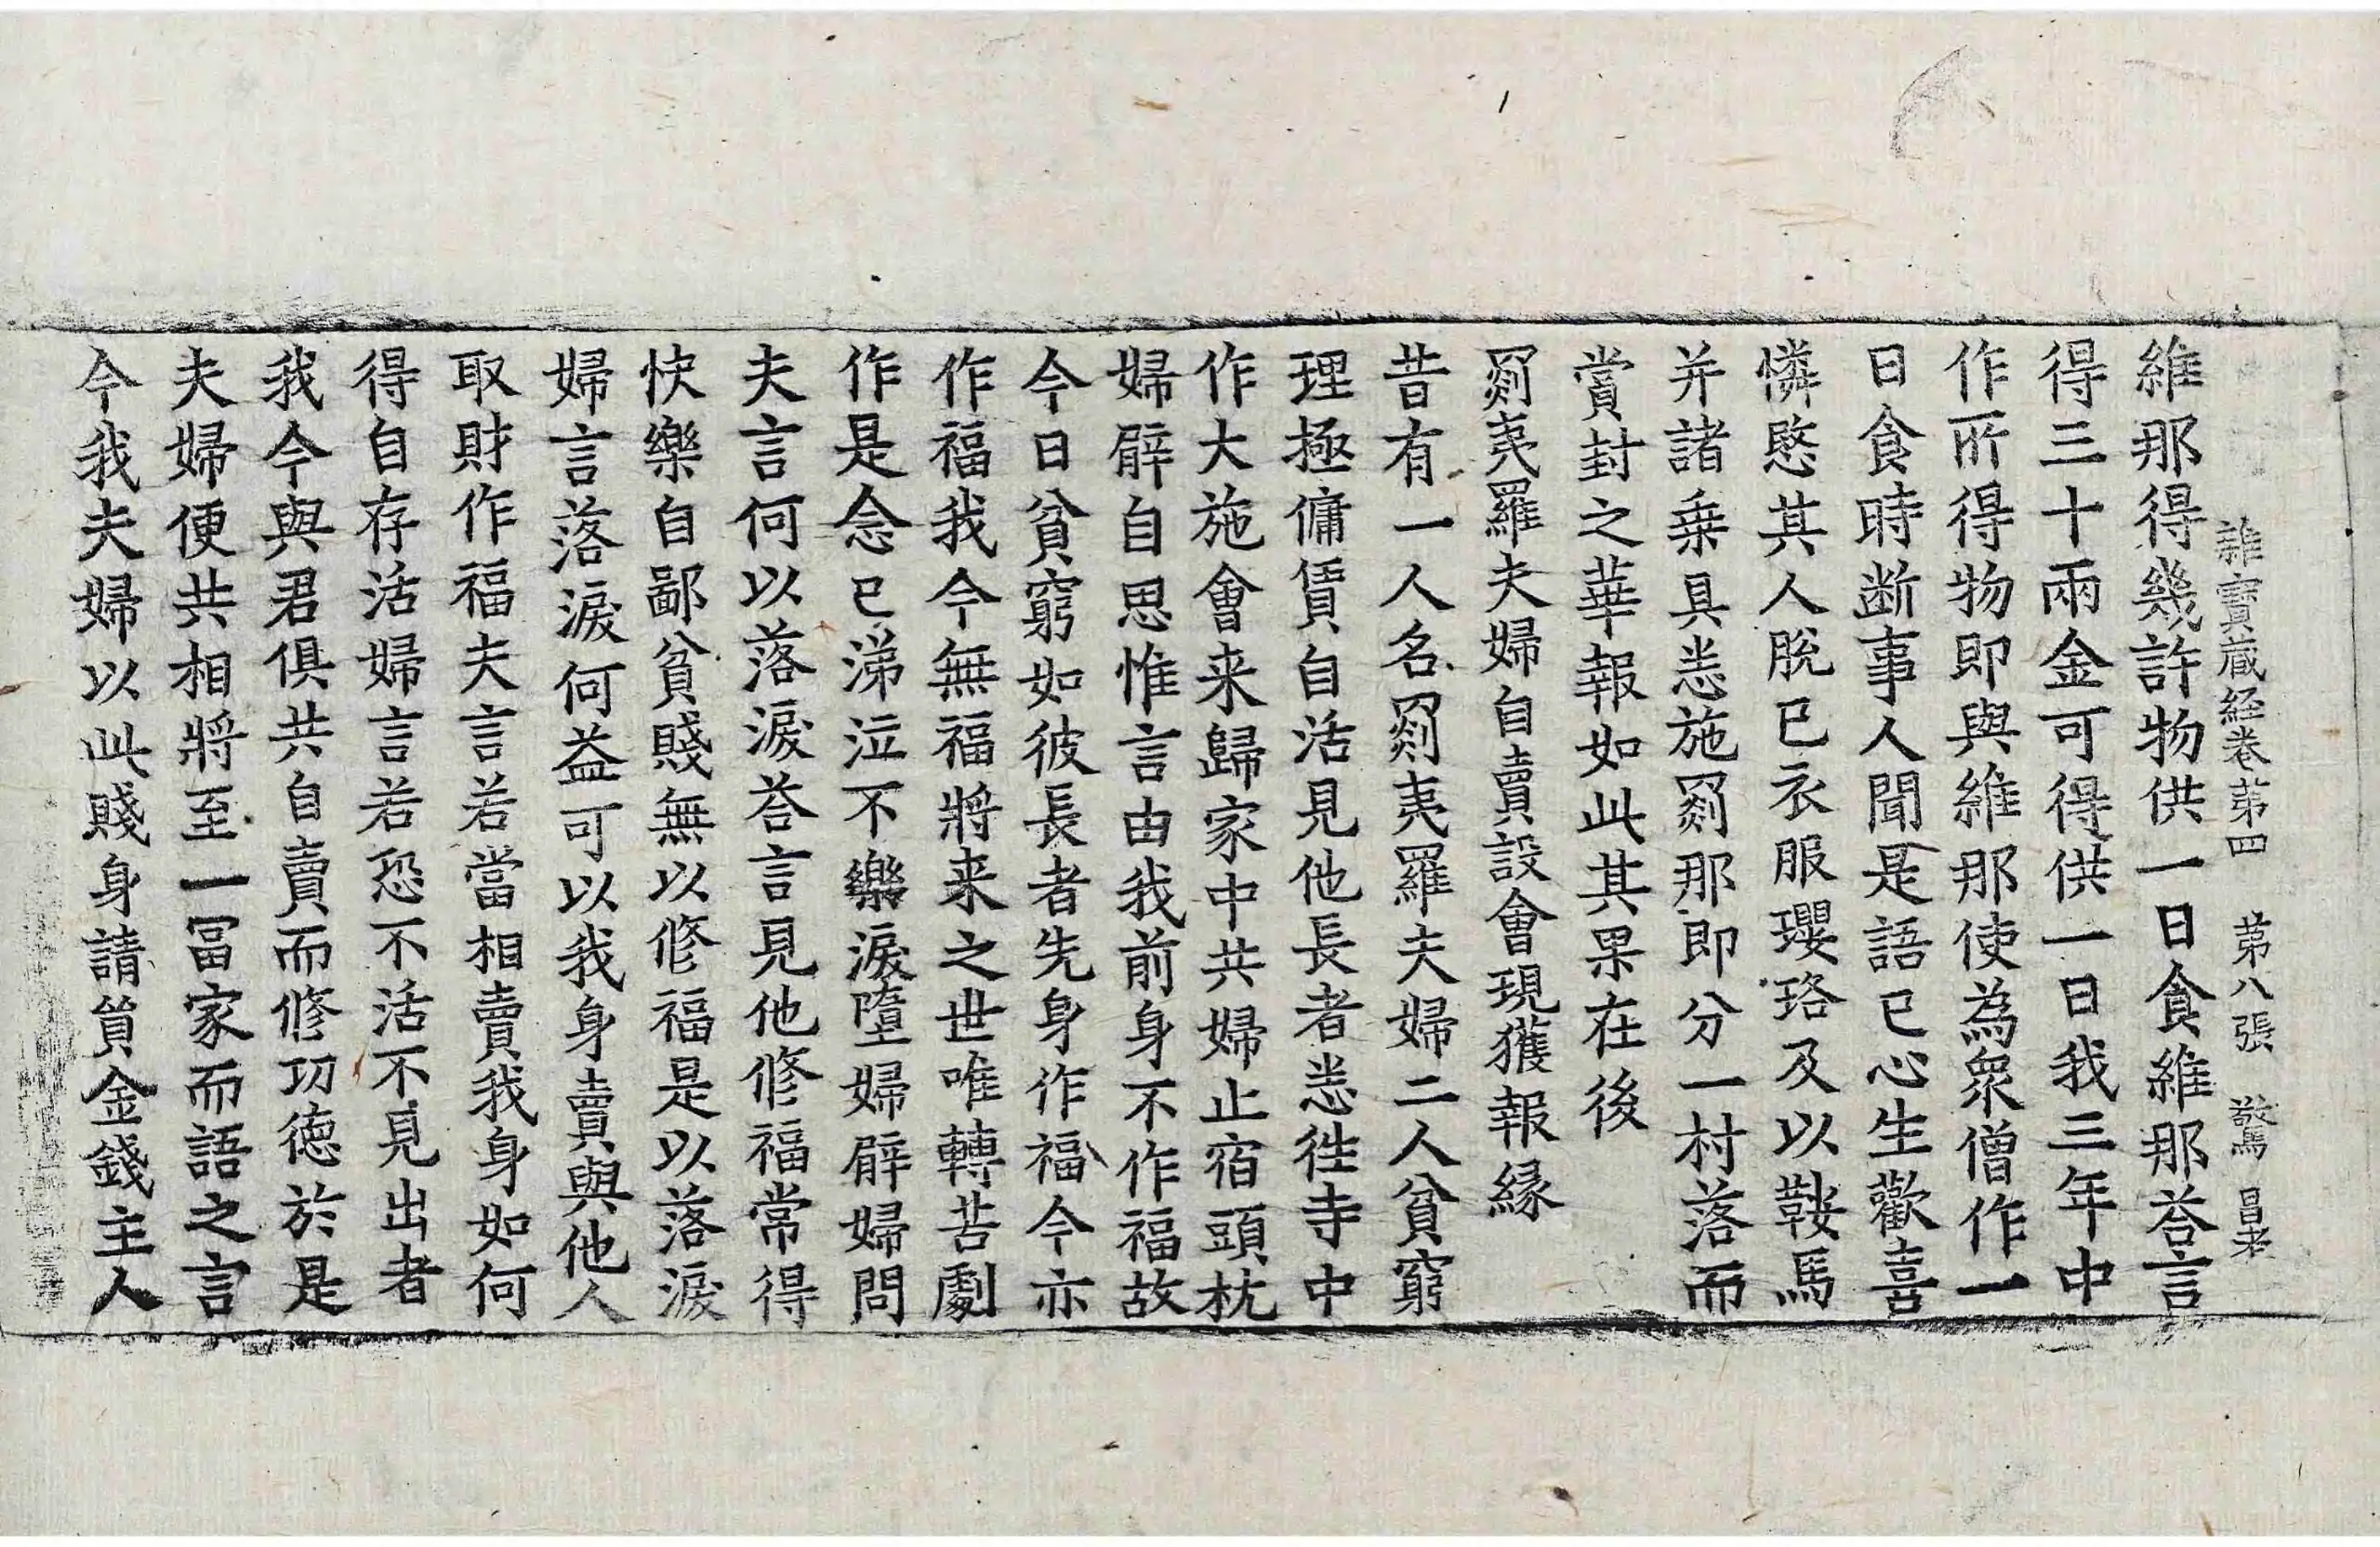 雜寶藏経卷苐四 苐八張 驚 昌老
維那得幾許物供一日食維那荅言
得三十兩金可得供一日我三年中
作所得物即與維那使為衆僧作一
日食時断事人聞是語已心生歡喜
憐愍其人脫已衣服瓔珞及以鞍馬
并諸乗具悉施罽那即分一村落而
賞封之華報如此其果在後
罽夷羅夫婦自賣設會現獲報縁
昔有一人名罽夷羅夫婦二人貧窮
理極傭賃自活見他長者悉徃寺中
作大施會来歸家中共婦止宿頭枕
婦臂自思惟言由我前身不作福故
今日貧窮如彼長者先身作福今亦
作福我今無福將来之世唯轉苦劇
作是念已涕泣不樂淚墮婦臂婦問
夫言何以落淚荅言見他修福常得
快樂自鄙貧賤無以修福是以落淚
婦言落淚何益可以我身賣與他人
取財作福夫言若當相賣我身如何
得自存活婦言若恐不活不見出者
我今與君俱共自賣而修功徳於是
夫婦便共相將至一冨家而語之言
今我夫婦以此賤身請貿金錢主人